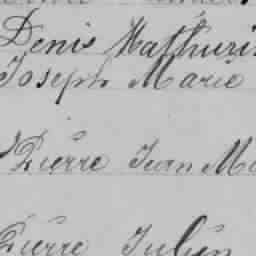 Denis Mathuri
Joseph Marie
Pierre Jean Ma
Pierre Julien